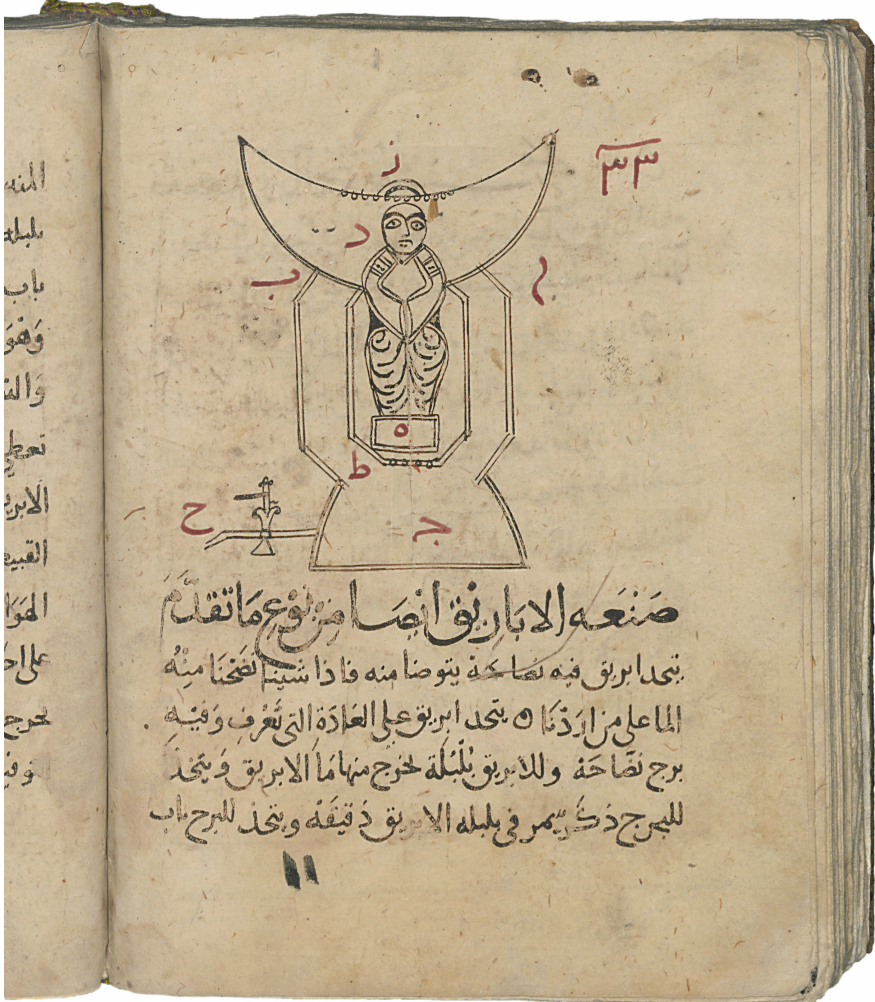 ٣٣
ز
د
ب
ا
ه
ط
ح
ج
صَنْعَه الاباريق ايضا من نوع ما تقدّم
يتحد ابريق فيه نضاحة يتوضا منه فاذا شينا نضحنا منه
الما على من اردنا ه يتحد ابريق على العادة التي تعرف وفيه
برج نضاحة وللابريق بلبلة يخرج منها ما الابريق ويتخذ
للبرج ذكر يمر في بلبله الابريق دقيقة ويتخذ للبرج باب
بلبله
باب
وهو
تعطي
على
يخرج